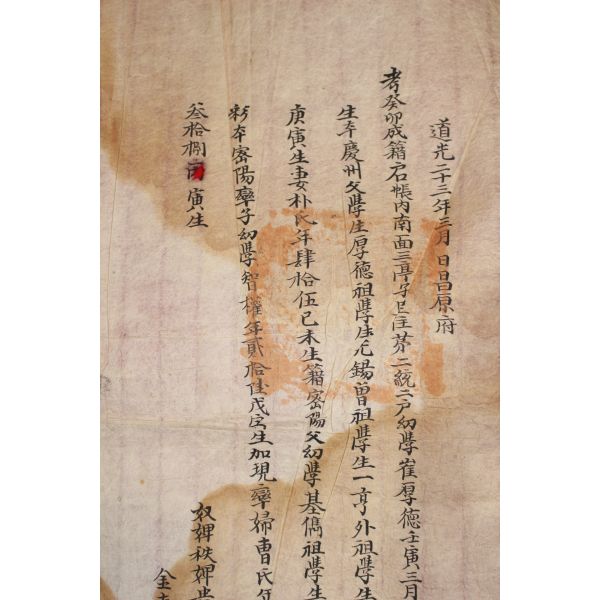 道光二十三年三月 日昌原府
考癸卯成籍戶帳內南面三亭子里住第二統二戶幼學崔厚德壬寅三月
生本慶州父學生厚德祖學生元錫曾祖學生一亨外祖學生
庚寅生妻朴氏年肆拾伍己未生籍密陽父幼學基儁祖學生
本密陽率子幼學智權年貳拾陸戊寅生加現率婦曺氏年
叁拾捌 寅生
奴婢秩婢
金